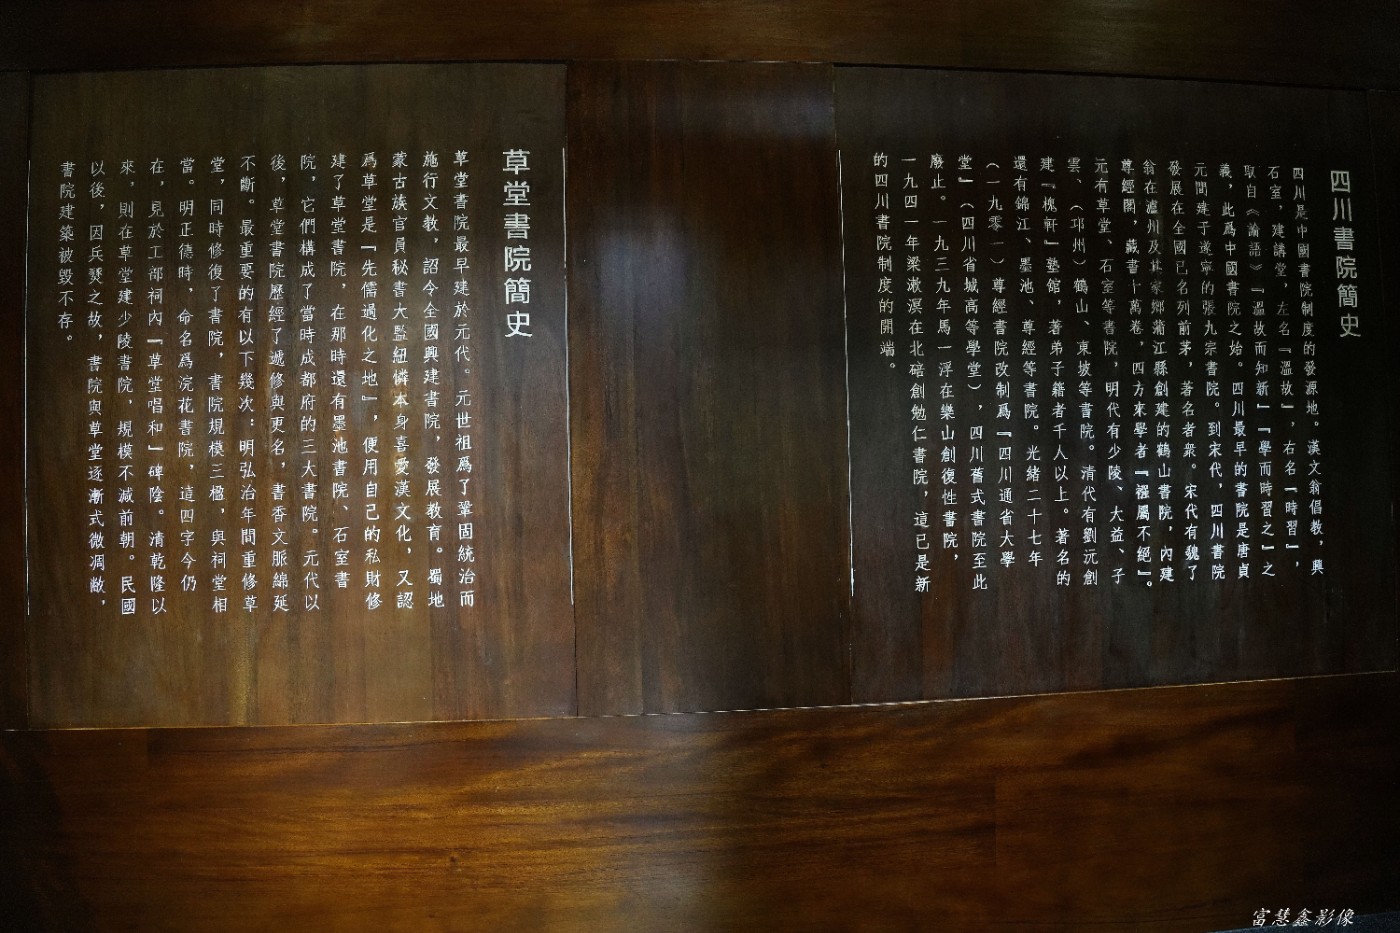 四川書院簡史
四川是中國書院制度的發源地。漢文翁倡教，興
石室，建講堂，左名『溫故』，右名『時習』，
取自《論語》『溫故而知新』『學而時習之』之
義，此爲中國書院之始。四川最早的書院是唐貞
元間建于遂寧的張九宗書院。到宋代，四川書院
發展在全國已名列前茅，著名者衆。宋代有魏了
翁在瀘州及其家鄉蒲江縣創建的鶴山書院，內建
尊經閣，藏書十萬卷，四方來學者『襁屬不絕』。
元有草堂、石室等書院，明代有少陵、大益、子
雲、（邛州）鶴山、東坡等書院。清代有劉沅創
建『槐軒』塾館，著弟子籍者千人以上。著名的
還有錦江、墨池、尊經等書院。光緒二十七年
（一九零一）尊經書院改制爲『四川通省大學
堂』（四川省城高等學堂），四川舊式書院至此
廢止。一九三九年馬一浮在樂山創復性書院，
一九四一年梁漱溟在北碚創勉仁書院，這已是新
的四川書院制度的開端。
草堂書院簡史
草堂書院最早建於元代。元世祖爲了鞏固統治而
施行文教，詔令全國興建書院，發展教育。蜀地
蒙古族官員秘書大監紐憐本身喜愛漢文化，又認
爲草堂是『先儒過化之地』，便用自己的私財修
建了草堂書院，在那時還有墨池書院、石室書
院，它們構成了當時成都府的三大書院。元代以
後，草堂書院歷經了遞修與更名，書香文脈綿延
不斷。最重要的有以下幾次：明弘治年間重修草
堂，同時修復了書院，書院規模三楹，與祠堂相
當。明正德時，命名爲浣花書院，這四字今仍
在，見於工部祠內『草堂唱和』碑陰。清乾隆以
來，則在草堂建少陵書院，規模不減前朝。民國
以後，因兵燹之故，書院與草堂逐漸式微凋敝，
書院建築被毀不存。
富慧鑫影像